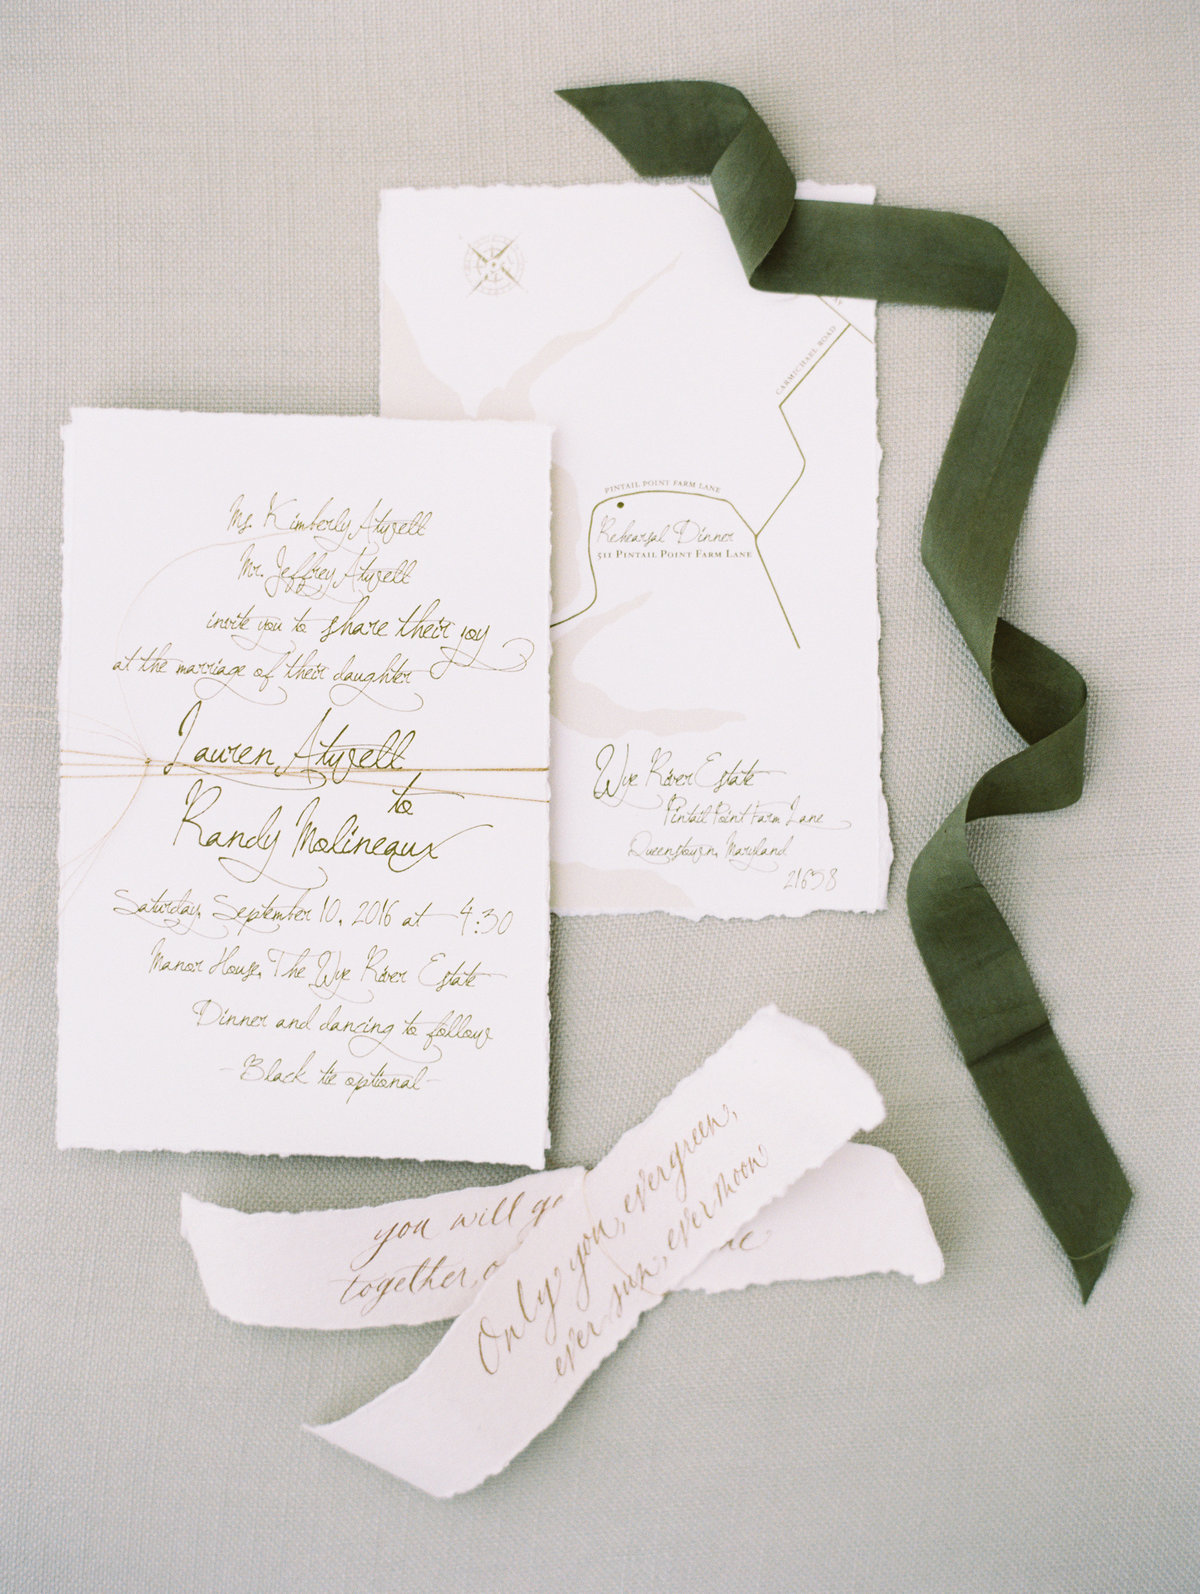 Ms. Kimberly Atwell
Mr. Jeffrey Atwell
invite you to share their joy
at the marriage of their daughter
Lauren Atwell
to
Randy Molineaux
Saturday, September 10, 2016 at 4:30
Manor House, The Wye River Estate
Dinner and dancing to follow
- Black tie optional -
CARMICHAEL ROAD
PINTAIL POINT FARM LANE
Rehearsal Dinner
511 PINTAIL POINT FARM LANE
Wye River Estate
Pintail Point Farm Lane
Queenstown, Maryland
21658
you will go
together,
Only you, evergreen,
ever sun, ever moon